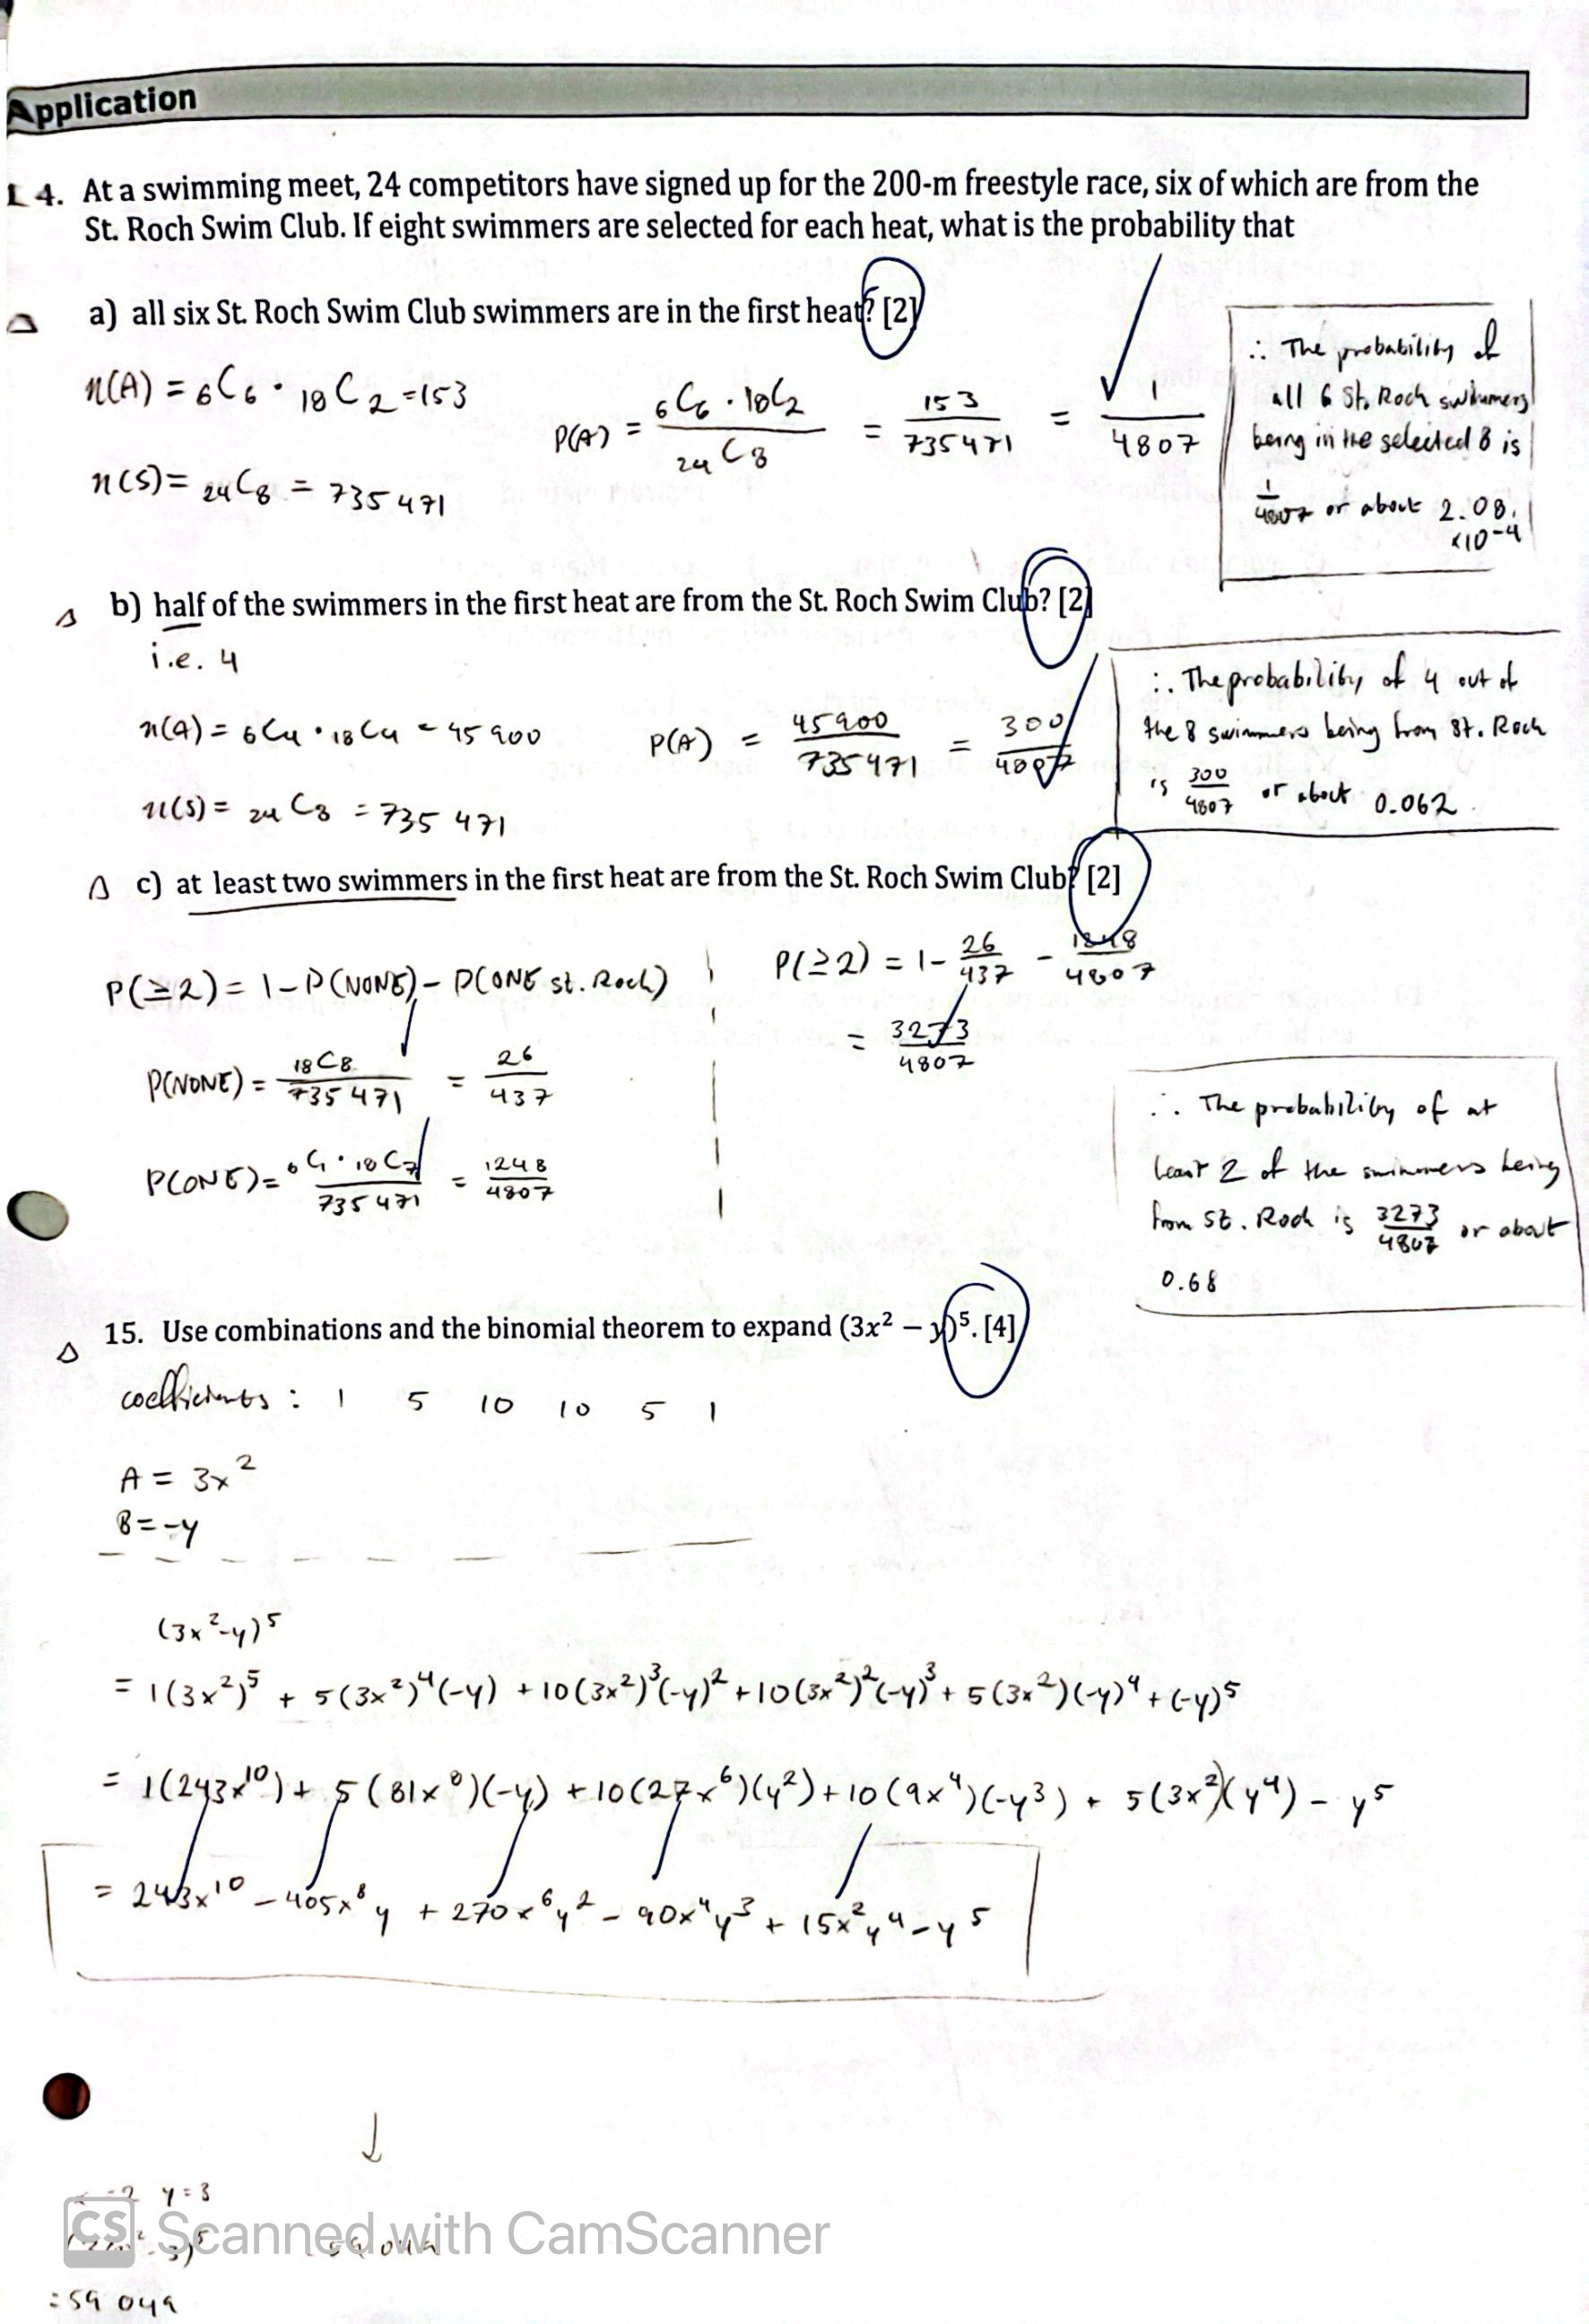 Application
14. At a swimming meet, 24 competitors have signed up for the 200-m freestyle race, six of which are from the
St. Roch Swim Club. If eight swimmers are selected for each heat, what is the probability that
a) all six St. Roch Swim Club swimmers are in the first heat? [2]
n(A) = 6C6 · 18C2 = 153
n(S) = 24C8 = 735 471
P(A) = 6C6 · 18C2 / 24C8 = 153 / 735471 = 1 / 4807
∴ The probability of
all 6 St. Roch swimmers
being in the selected 8 is
1/4807 or about 2.08
×10⁻⁴
b) half of the swimmers in the first heat are from the St. Roch Swim Club? [2]
i.e. 4
n(A) = 6C4 · 18C4 = 45 900
n(S) = 24C8 = 735 471
P(A) = 45900 / 735471 = 300 / 4807
∴ The probability of 4 out of
the 8 swimmers being from St. Roch
is 300/4807 or about 0.062.
c) at least two swimmers in the first heat are from the St. Roch Swim Club? [2]
P(≥2) = 1 - P(NONE) - P(ONE st. Roch)
P(NONE) = 18C8 / 735 471 = 26 / 437
P(ONE) = 6C1 · 18C7 / 735 471 = 1248 / 4807
P(≥2) = 1 - 26/437 - 1248/4807
= 3273 / 4807
∴ The probability of at
least 2 of the swimmers being
from St. Roch is 3273/4807 or about
0.68
15. Use combinations and the binomial theorem to expand (3x² – y)⁵. [4]
coefficients : 1 5 10 10 5 1
A = 3x²
B = -y
(3x²-y)⁵
= 1(3x²)⁵ + 5(3x²)⁴(-y) + 10(3x²)³(-y)² + 10(3x²)²(-y)³ + 5(3x²)(-y)⁴ + (-y)⁵
= 1(243x¹⁰) + 5(81x⁸)(-y) + 10(27x⁶)(y²) + 10(9x⁴)(-y³) + 5(3x²)(y⁴) - y⁵
= 243x¹⁰ - 405x⁸y + 270x⁶y² - 90x⁴y³ + 15x²y⁴ - y⁵
y = 3
CS Scanned with CamScanner
= 59 049